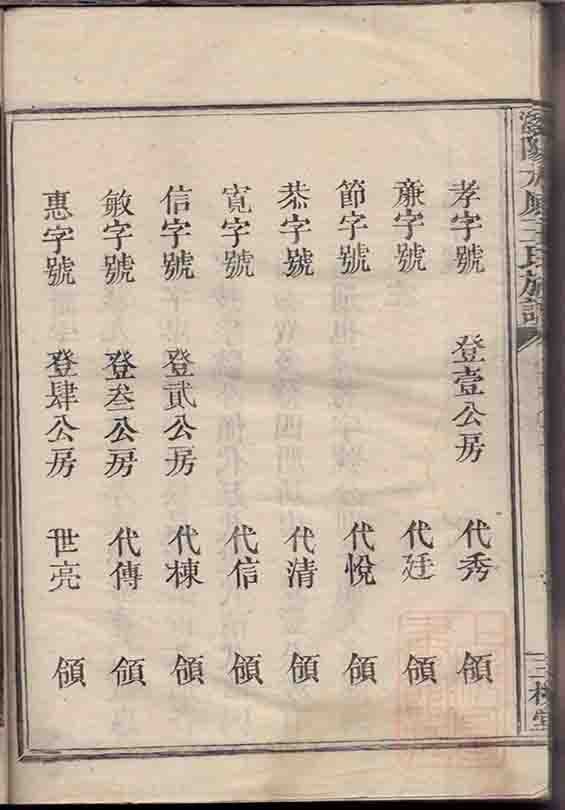 王氏族譜
三槐堂
孝字號 登壹公房 代秀 領
亷字號 代廷 領
節字號 代悅 領
恭字號 代清 領
寬字號 代信 領
信字號 登貳公房 代棟 領
敏字號 登叁公房 代傳 領
惠字號 登肆公房 世亮 領